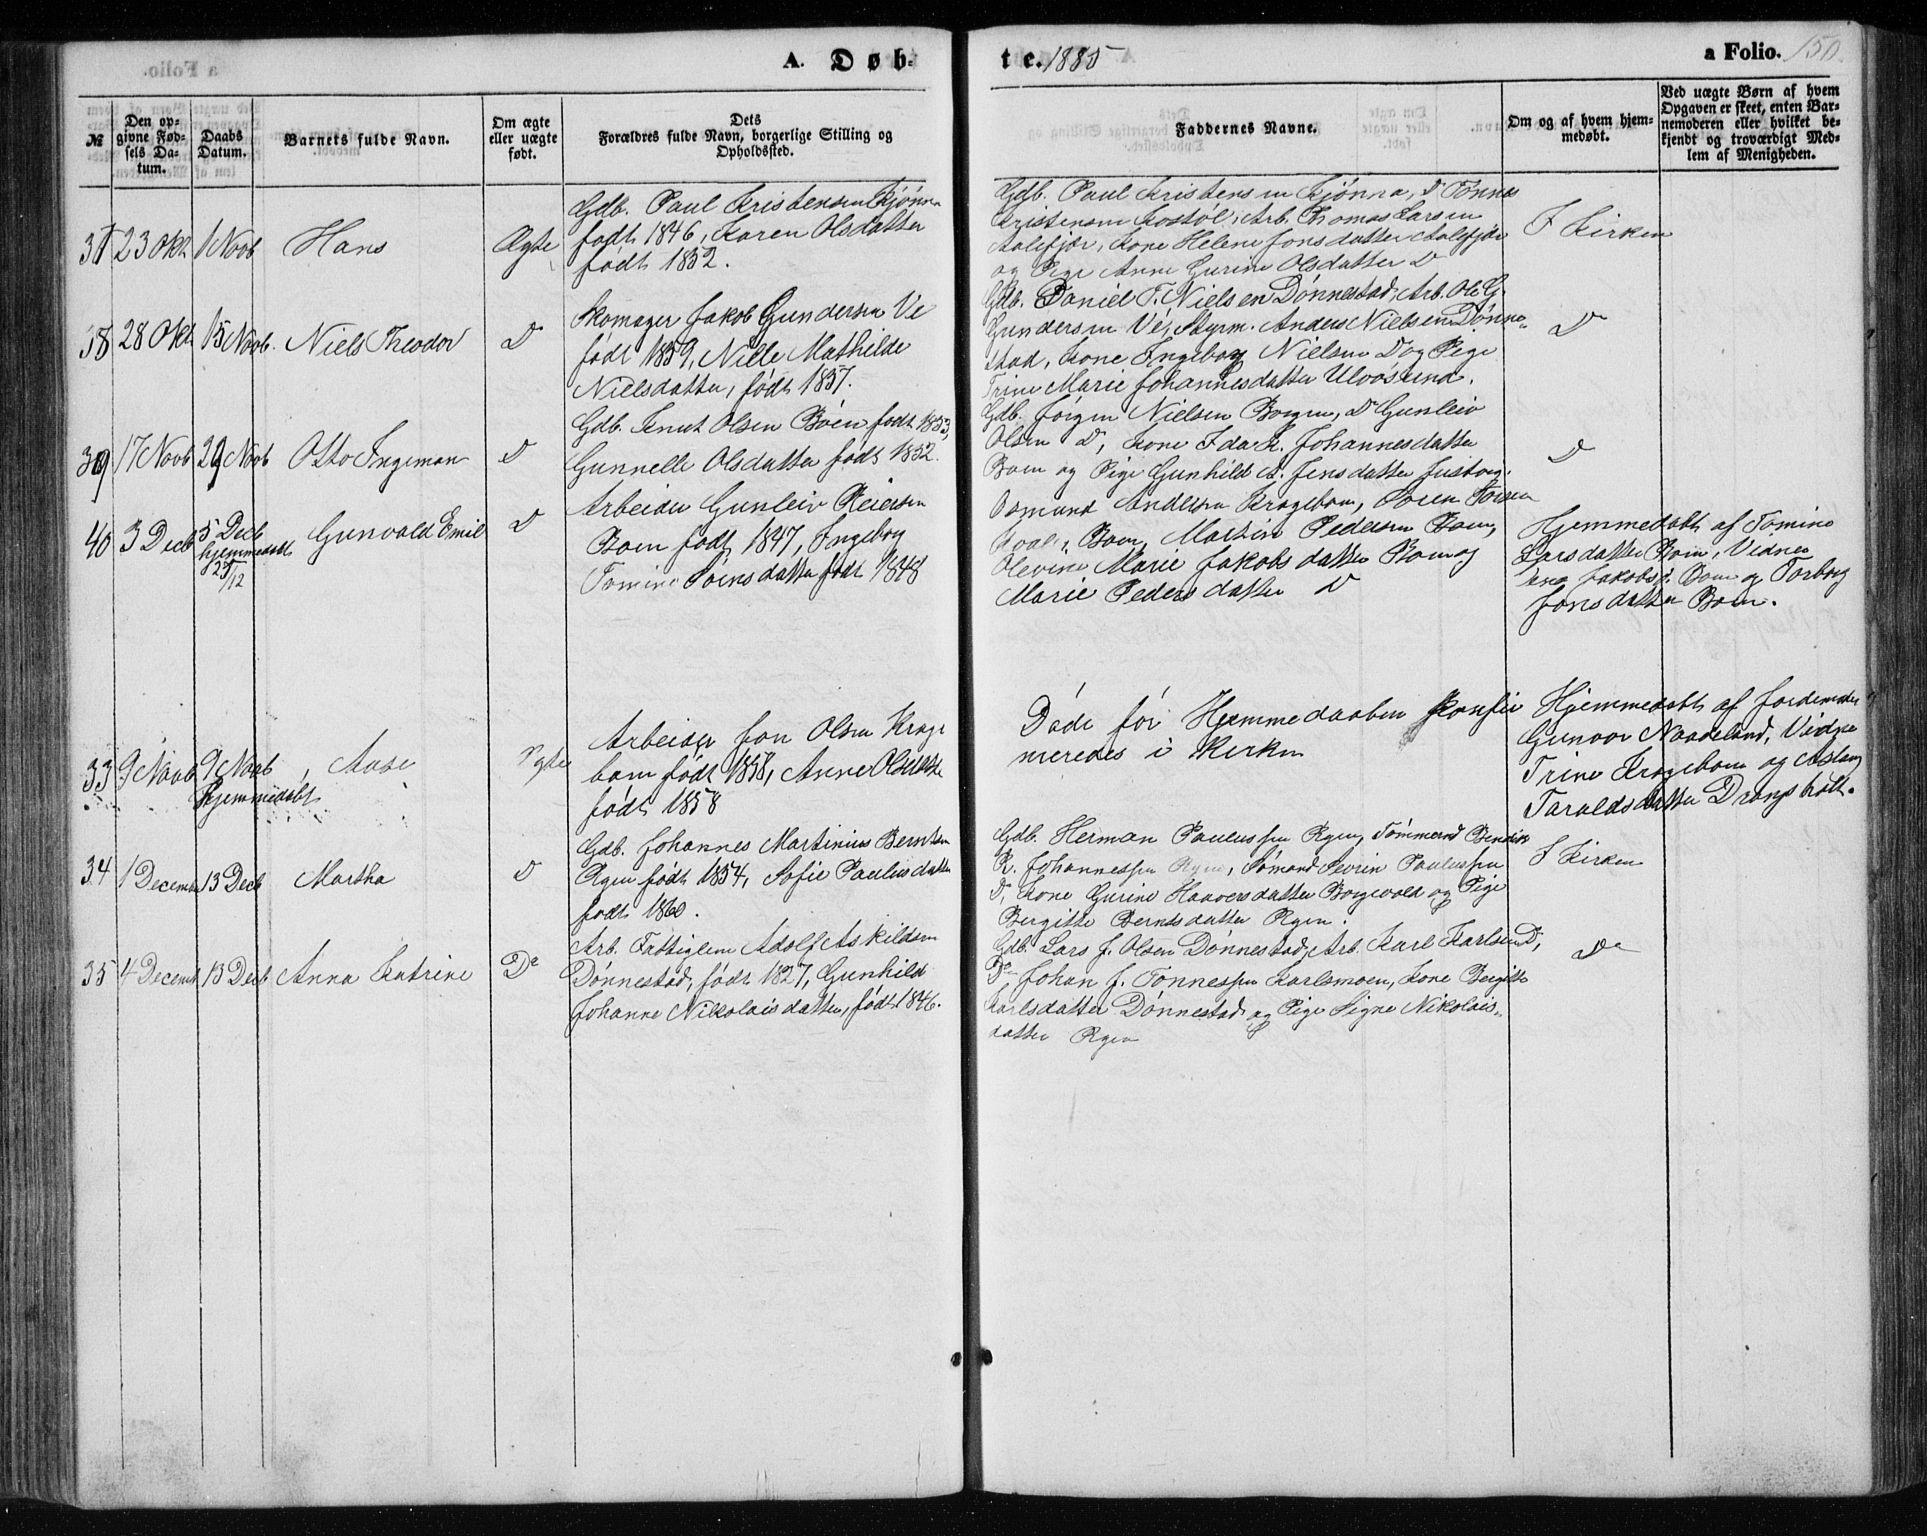 A. Døb-
te. 1885
a Folio. 150.
№
Den op-
givne Fød-
sels Da-
tum.
Daabs
Datum.
Barnets fulde Navn.
Om ægte
eller uægte
født.
Dets
Forældres fulde Navn, borgerlige Stilling og
Opholdssted.
Faddernes Navne.
Om og af hvem hjem-
medøbt.
Ved uægte Børn af hvem
Opgaven er skeet, enten Bar-
nemoderen eller hvilket be-
kjendt og troværdigt Med-
lem af Menigheden.
37 23 Okt 1 Novb Hans Ægte
Gdb. Paul Kristensen Kjønna
født 1846, Karen Olsdatter
født 1852.
Gdb. Paul Kristensen Kjønna, Do Tønnes
Kristensen Kostøl, Arb. Thomas Larsen
Aalefjær, Kone Helene Jonsdatter Aalefjær
og Pige Anne Gurine Olsdatter Do
I Kirken
38 28 Okt 15 Novb. Niels Theodor Do
Skomager Jakob Gundersen Ve
født 1859, Nille Mathilde
Nielsdatter, født 1857.
Gdb. Daniel T. Nielsen Dønnestad, Arb. Ole G.
Gundersen Ve, Styrm. Anders Nielsen Dønne-
stad, Kone Ingeborg Nielsen Do og Pige
Trine Marie Johannesdatter Ulvøsund.
Do
39 17 Novb 29 Novb Otto Ingeman Do
Gdb. Knut Olsen Bøen født 1853,
Gunnelle Olsdatter født 1852.
Gdb. Jörgen Nielsen Boen, Do Gunleiv
Olsen Do, Kone Ida K. Johannesdatter
Boen og Pige Gunhild A. Jensdatter Justvig.
Do
40 3 Decb 5 Decb
hjemmedøbt
25/12
Gunvald Emil Do
Arbeider Gunleiv Reiersen
Boen født 1847, Ingeborg
Tomine Söensdatter født 1848
Osmund Andersen Krageboen, Søren
Boen, Martin Pedersen Boen,
Olevine Marie Jakobsdatter Boen og
Marie Pedersdatter Do
Hjemmedøbt af Tomine
Larsdatter Boen, Vidner
Jakobs. Boen og Torborg
Jonsdatter Boen.
33 9 Novb 9 Novb
Hjemmedøbt
Aase Ægte
Arbeider Jon Olsen Krage
boen født 1858, Anne Olsdatter
født 1858
Døde før Hjemmedaaben konfir
meredes i Kirken
Hjemmedøbt af Jordemoder
Gunvor Naadeland, Vidne
Trine Krageboen og Aslaug
Taraldsdatter Drangsholt.
34 1 December 13 Decb Martha Do
Gdb. Johannes Martinius Berntsen
Rgen født 1854, Sofie Paulusdatter
født 1860.
Gdb. Herman Paulussen Rgen, Tømmermd Bendik
R. Johannessen Rgen, Sømand Severin Paulussen
Do, Kone Gurine Haaversdatter Borgevold og Pige
Bergitte Berntsdatter Rgen.
I Kirken
35 4 Decemb 13 Decb Anna Katrine Do
Arb. Fattiglem Adolf Askildsen
Dønnestad, født 1827, Gunhild
Johanne Nikolaisdatter, født 1846.
Gdb. Lars J. Olsen Dønnestad, Arb. Karl Karlsen Do,
Do Johan J. Tønnessen Karlsmoen, Kone Bergitte
Karlsdatter Dønnestad og Pige Signe Nikolais-
datter Rgen
Do